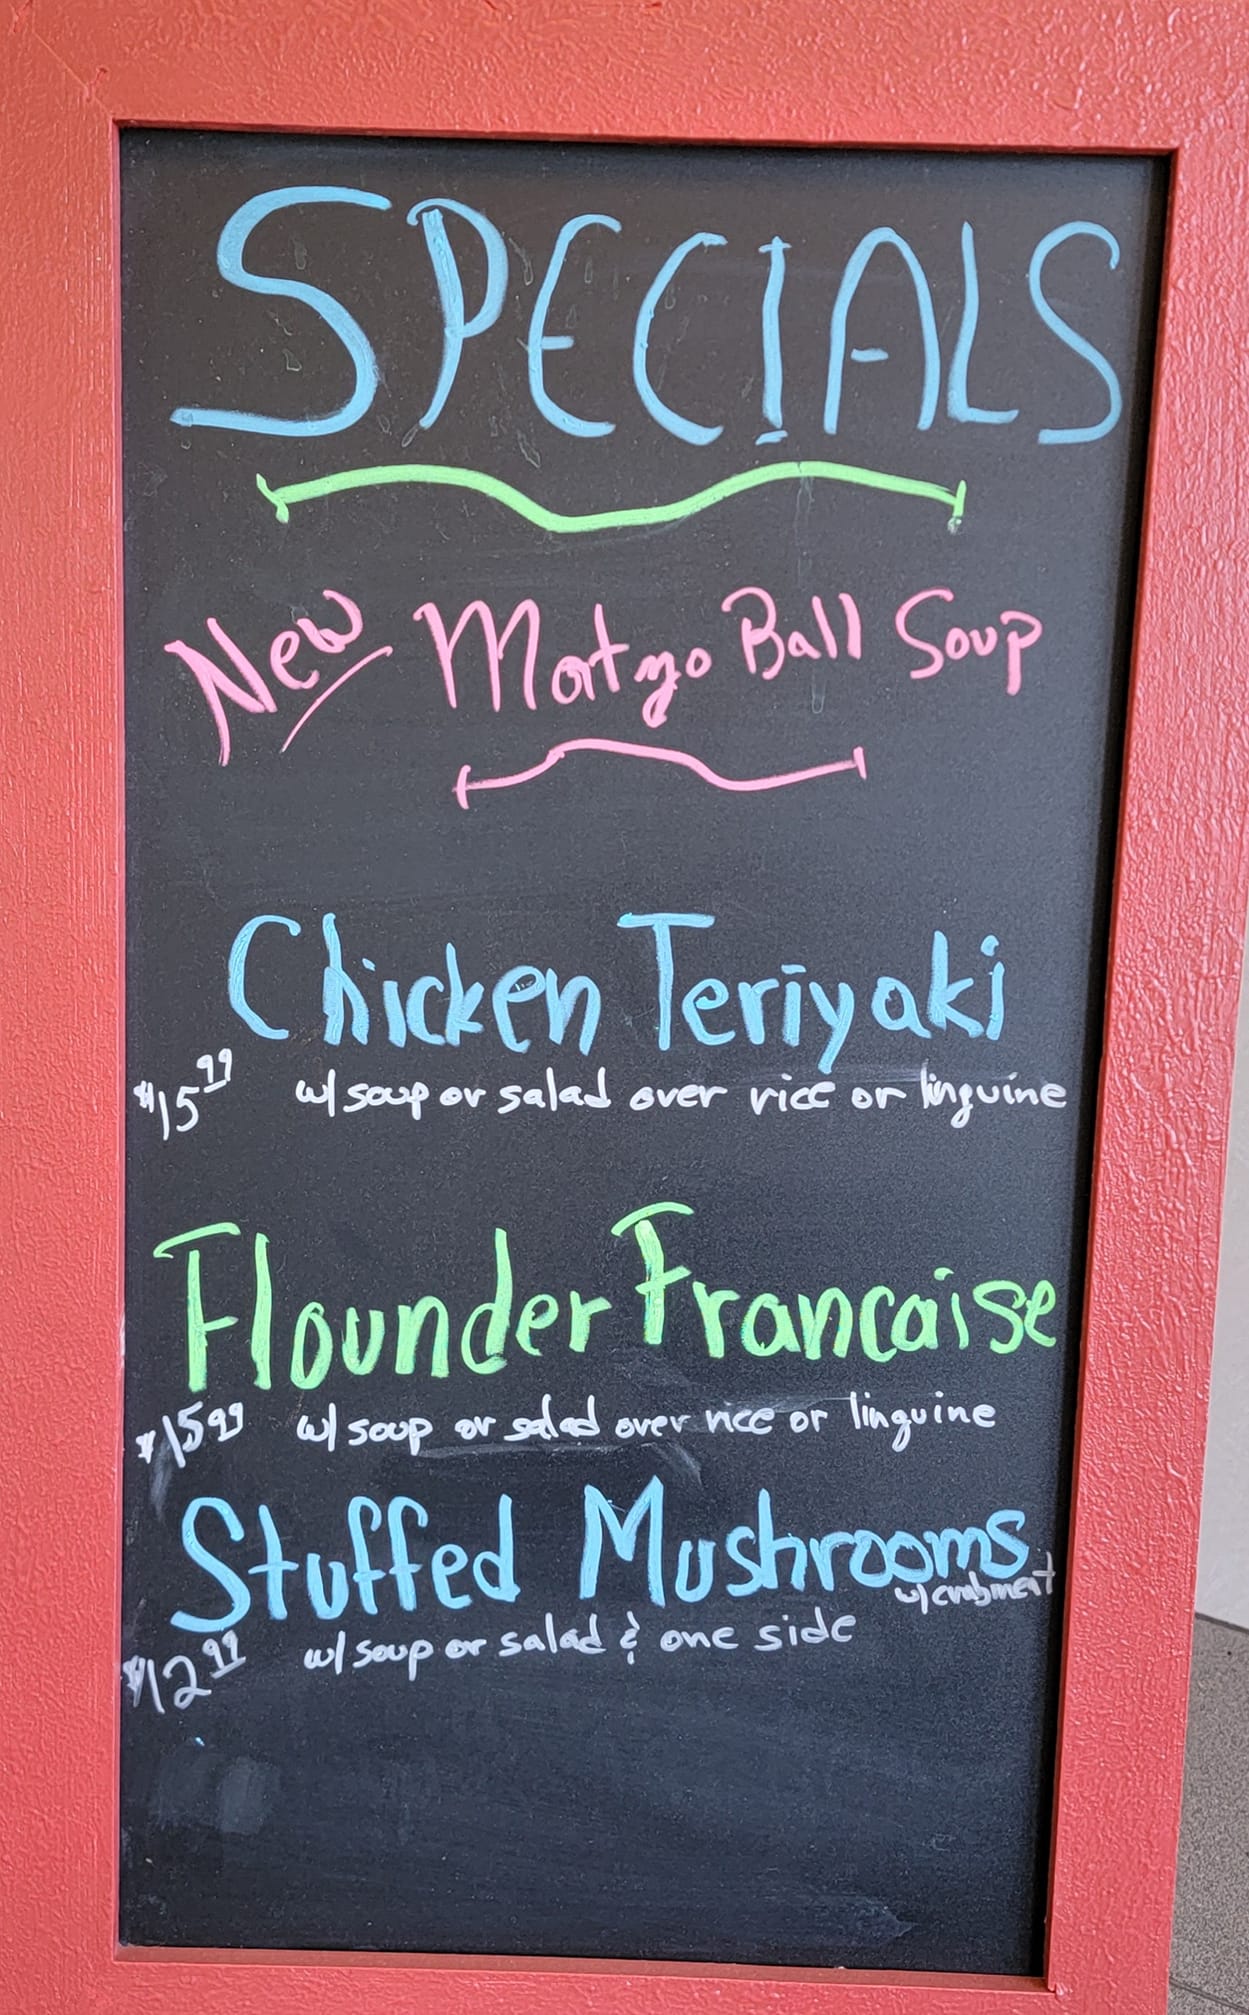 SPECIALS
New Matzo Ball Soup
Chicken Teriyaki
$15.99 w/ soup or salad over rice or linguine
Flounder Francaise
$15.99 w/ soup or salad over rice or linguine
Stuffed Mushrooms
w/ crabmeat
$12.99 w/ soup or salad & one side